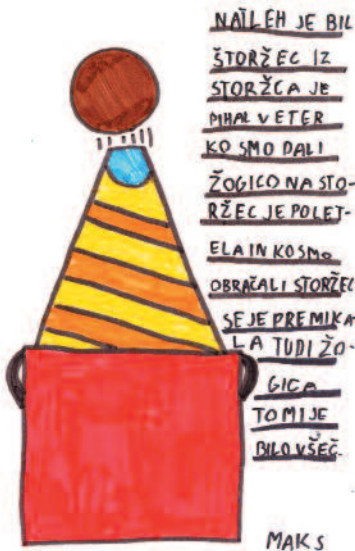 NAJLEH JE BIL
ŠTORŽEC IZ
STORŽCA JE
PIHAL VETER
KO SMO DALI
ŽOGICO NA STO-
RŽEC JE POLET-
ELA IN KO SMO
OBRAČALI STORŽEC
SE JE PREMIKA
LA TUDI ŽO-
GICA
TO MI JE
BILO VŠEČ.
MAKS